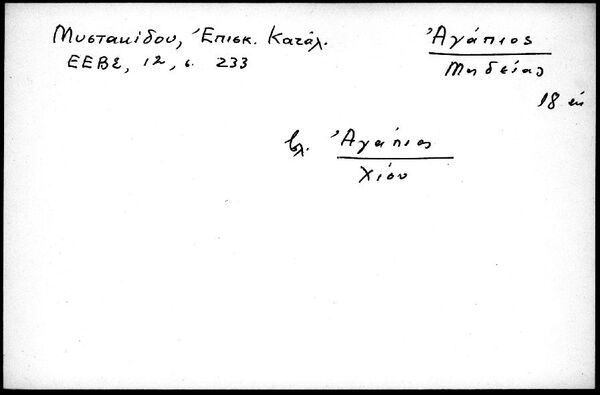 Μυστακίδου, Ἐπισκ. Κατάλ.
ΕΕΒΣ, 12, σ. 233
Ἀγάπιος
Μηδείας
18 αι
βλ. Ἀγάπιος
Χίου